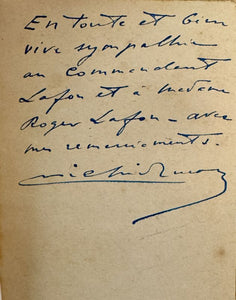 En toute et bien
vive sympathie
au commandant
Lafon et à madame
Roger Lafon – avec
mes remerciements.